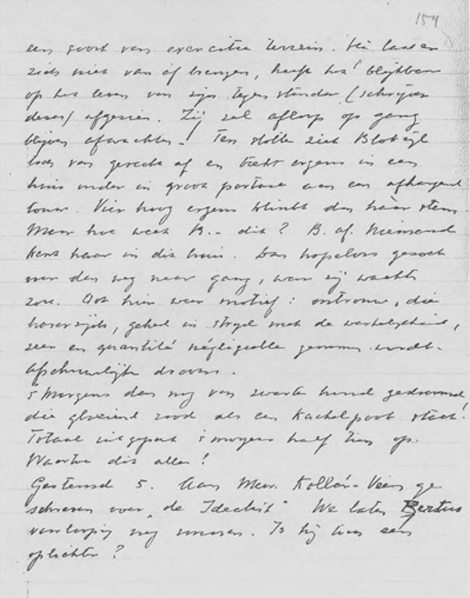 154
een soort van exercitie terrein. Hij laat en
zich niet van af brengen, heeft het blijkbaar
op het leven van zijn tegenstander (schrijver
dezes) afgezien. Zij zal afloop op gang
blijven afwachten! Ten slotte ziet
van gerecht af en trekt ergens in een
huis onder in groot portaal aan een afhangend
touw. Vier hoog ergens klinkt dan haar stem
Maar hoe weet B. dit? B. of Niemand
kent haar in dit huis. Dan hopeloos gezoek
naar den weg naar gang, waar zij wachten
zou. Ook hier weer motief: ontrouw,
geheel in strijd met de werkelijkheid,
en quantité négligeable genomen wordt.
Afschuwelijke droom.
's Morgens dan nog van zwarte hond gedroomd
die gloeiend rood als een kachelpook stack!
Totaal uitgeput 's morgens half tien op.
Waartoe dit alles!
5. Aan Mevr. Kollár-Veen ge
schreven over "de Idealist" We laten Bertus
voorloopig nog Is hij toch een
oplichter?